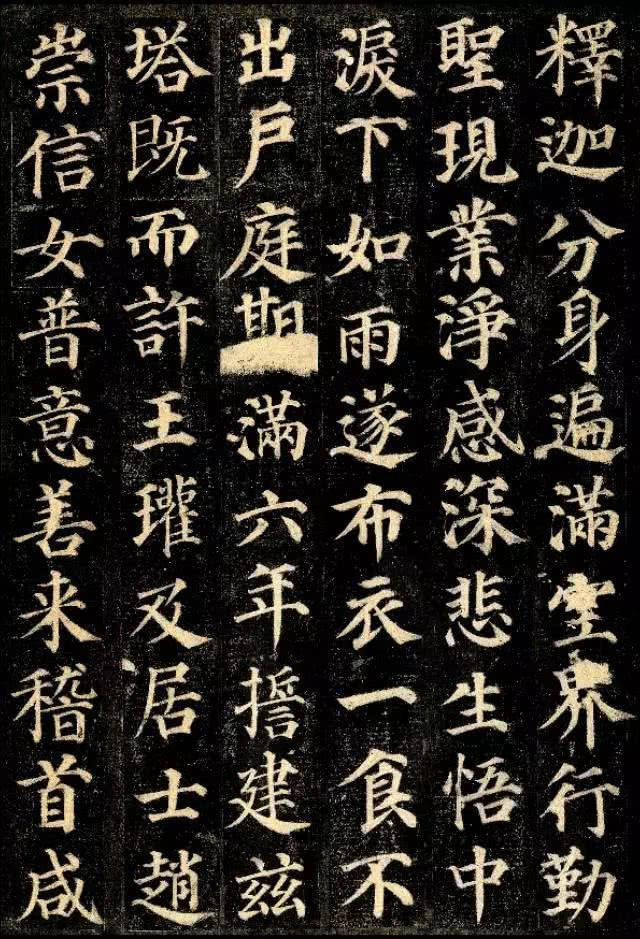 釋迦分身遍滿空界行勤
聖現業淨感深悲生悟中
淚下如雨遂布衣一食不
出戶庭期滿六年擔建茲
塔既而許王瓘及居士趙
崇信女普意善来稽首咸